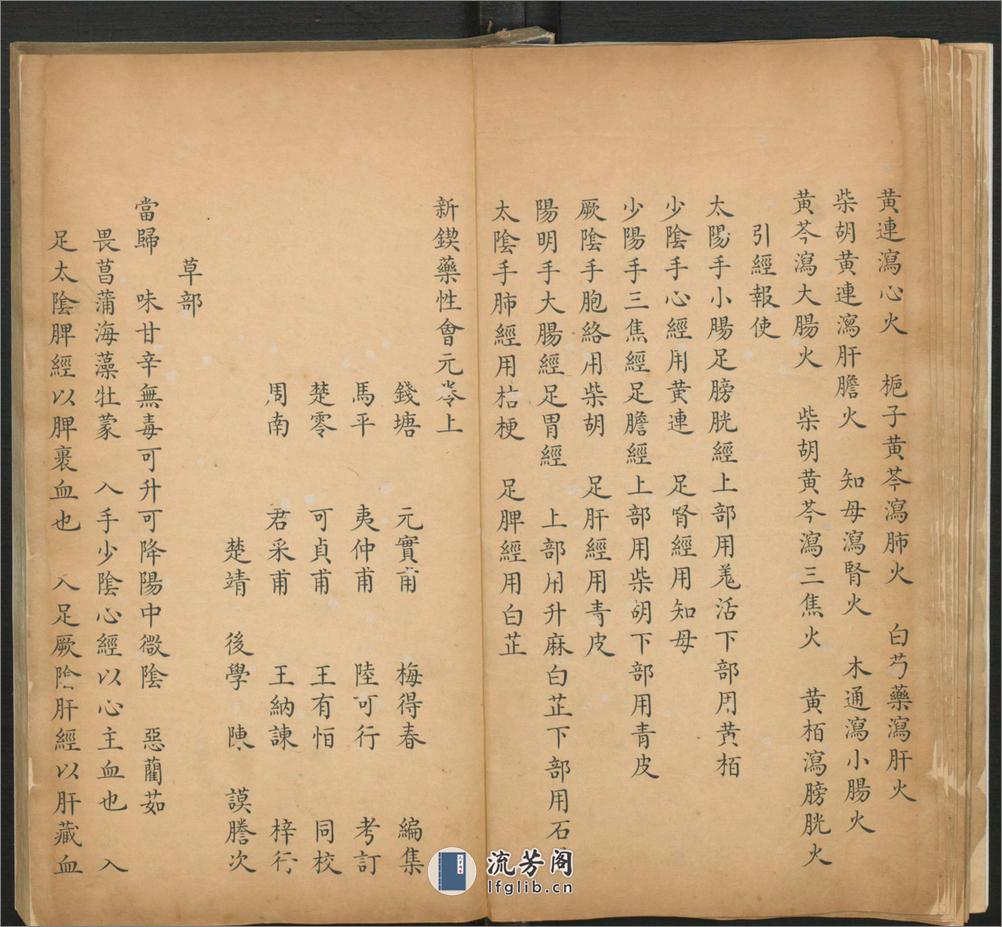 黄連瀉心火　梔子黄芩瀉肺火　白芍藥瀉肝火
柴胡黄連瀉肝膽火　知母瀉腎火　木通瀉小腸火
黄芩瀉大腸火　柴胡黄芩瀉三焦火　黄栢瀉膀胱火
引經報使
太陽手小腸足膀胱經上部用羗活下部用黄栢
少陰手心經用黄連　足腎經用知母
少陽手三焦經足膽經上部用柴胡下部用青皮
厥陰手胞絡用柴胡　足肝經用青皮
陽明手大腸經足胃經　上部用升麻白芷下部用石
太陰手肺經用桔梗　足脾經用白芷
新鍥藥性會元卷上
錢塘　元實甫　梅得春　編集
馬平　夷仲甫　陸可行　考訂
楚零　可貞甫　王有恒　同校
周南　君采甫　王納諫　梓行
楚靖　後學　陳　謨謄次
草部
當歸　味甘辛無毒可升可降陽中微陰　惡藺茹
畏菖蒲海藻牡蒙　入手少陰心經以心主血也　入
足太陰脾經以脾裹血也　入足厥陰肝經以肝藏血
流芳阁
lfglib.cn